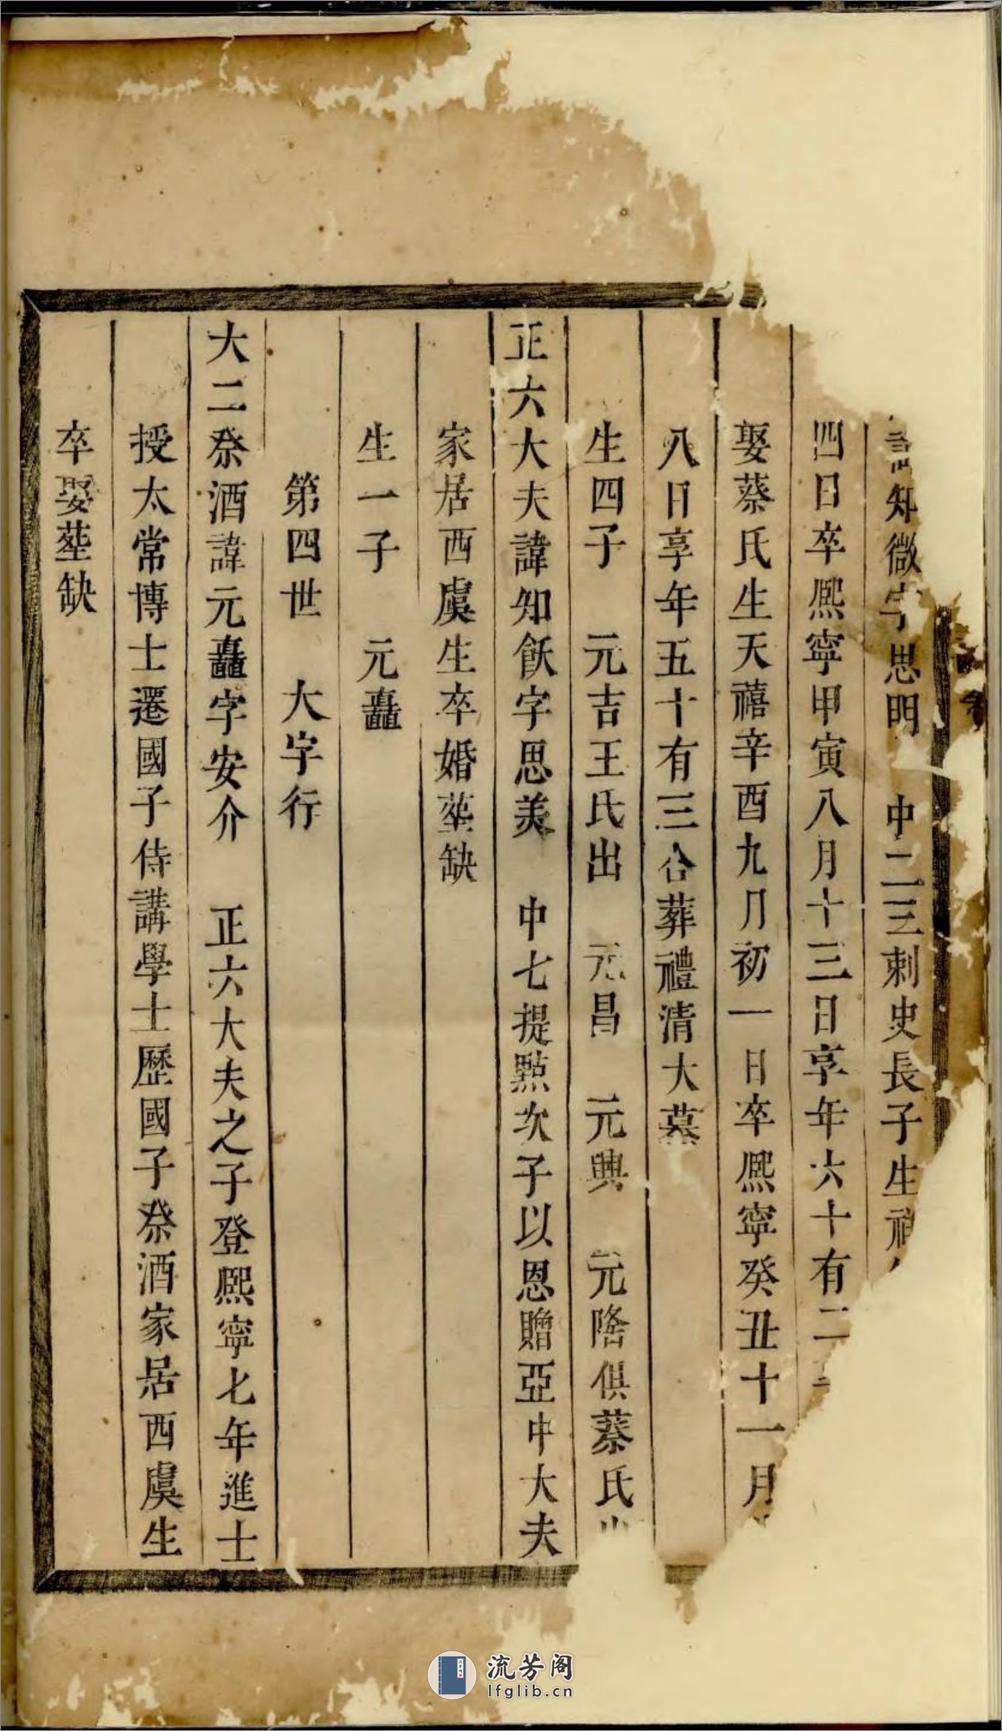 諱知微字思明　中二三刺史長子生
四日卒熙寧甲寅八月十三日享年六十有二
娶蔡氏生天禧辛酉九月初一日卒熙寧癸丑十一月
八日享年五十有三合葬禮清大墓
生四子　元吉王氏出　元昌　元興　元隆俱蔡氏出
正六大夫諱知飫字思美　中七提㸃次子以恩贈亞中大夫
家居西虞生卒婚塟缺
生一子　元矗
第四世　大字行
大二祭酒諱元矗字安介　正六大夫之子登熙寧七年進士
授太常博士遷國子侍講學士歷國子祭酒家居西虞生
卒娶塟缺
流芳阁
lfglib.cn